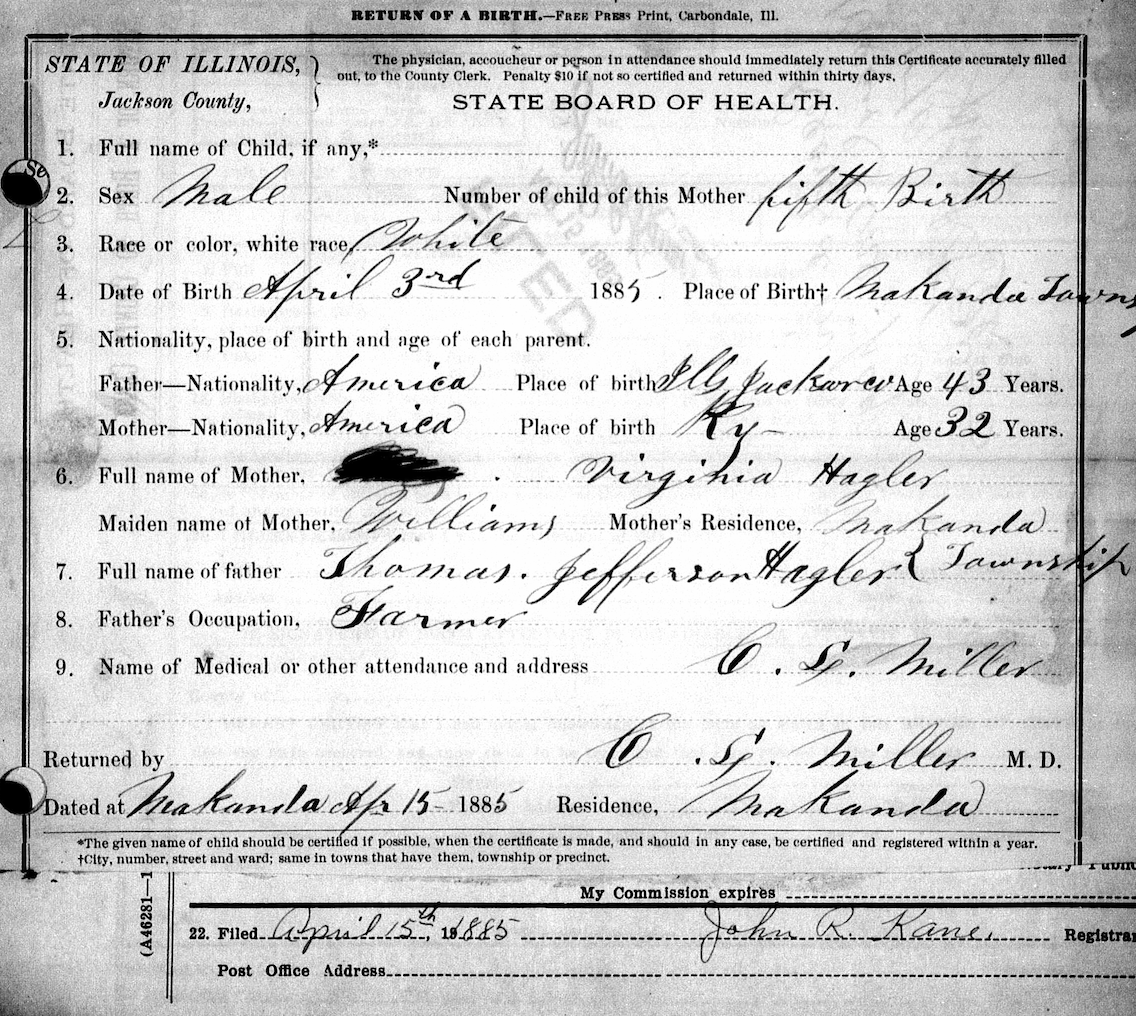 RETURN OF A BIRTH.—FREE PRESS Print, Carbondale, Ill.
STATE OF ILLINOIS,
Jackson County,
The physician, accoucheur or person in attendance should immediately return this Certificate accurately filled
out, to the County Clerk. Penalty $10 if not so certified and returned within thirty days,
STATE BOARD OF HEALTH.
1. Full name of Child, if any,*
2. Sex Male Number of child of this Mother fifth Birth
3. Race or color, white race, White
4. Date of Birth April 3rd 1885. Place of Birth† Makanda Towns
5. Nationality, place of birth and age of each parent.
Father—Nationality, America Place of birth Ills Jackson co Age 43 Years.
Mother—Nationality, America Place of birth Ky Age 32 Years.
6. Full name of Mother, Virginia Hagler
Maiden name of Mother, Williams Mother's Residence, Makanda
Township
7. Full name of father Thomas. Jefferson Hagler
8. Father's Occupation, Farmer
9. Name of Medical or other attendance and address C. L. Miller
Returned by C. L. Miller M. D.
Dated at Makanda Apr 15 1885 Residence, Makanda
*The given name of child should be certified if possible, when the certificate is made, and should in any case, be certified and registered within a year.
†City, number, street and ward; same in towns that have them, township or precinct.
My Commission expires
(A46281—1
22. Filed April 15th, 1885 John R. Kane. Registrar
Post Office Address